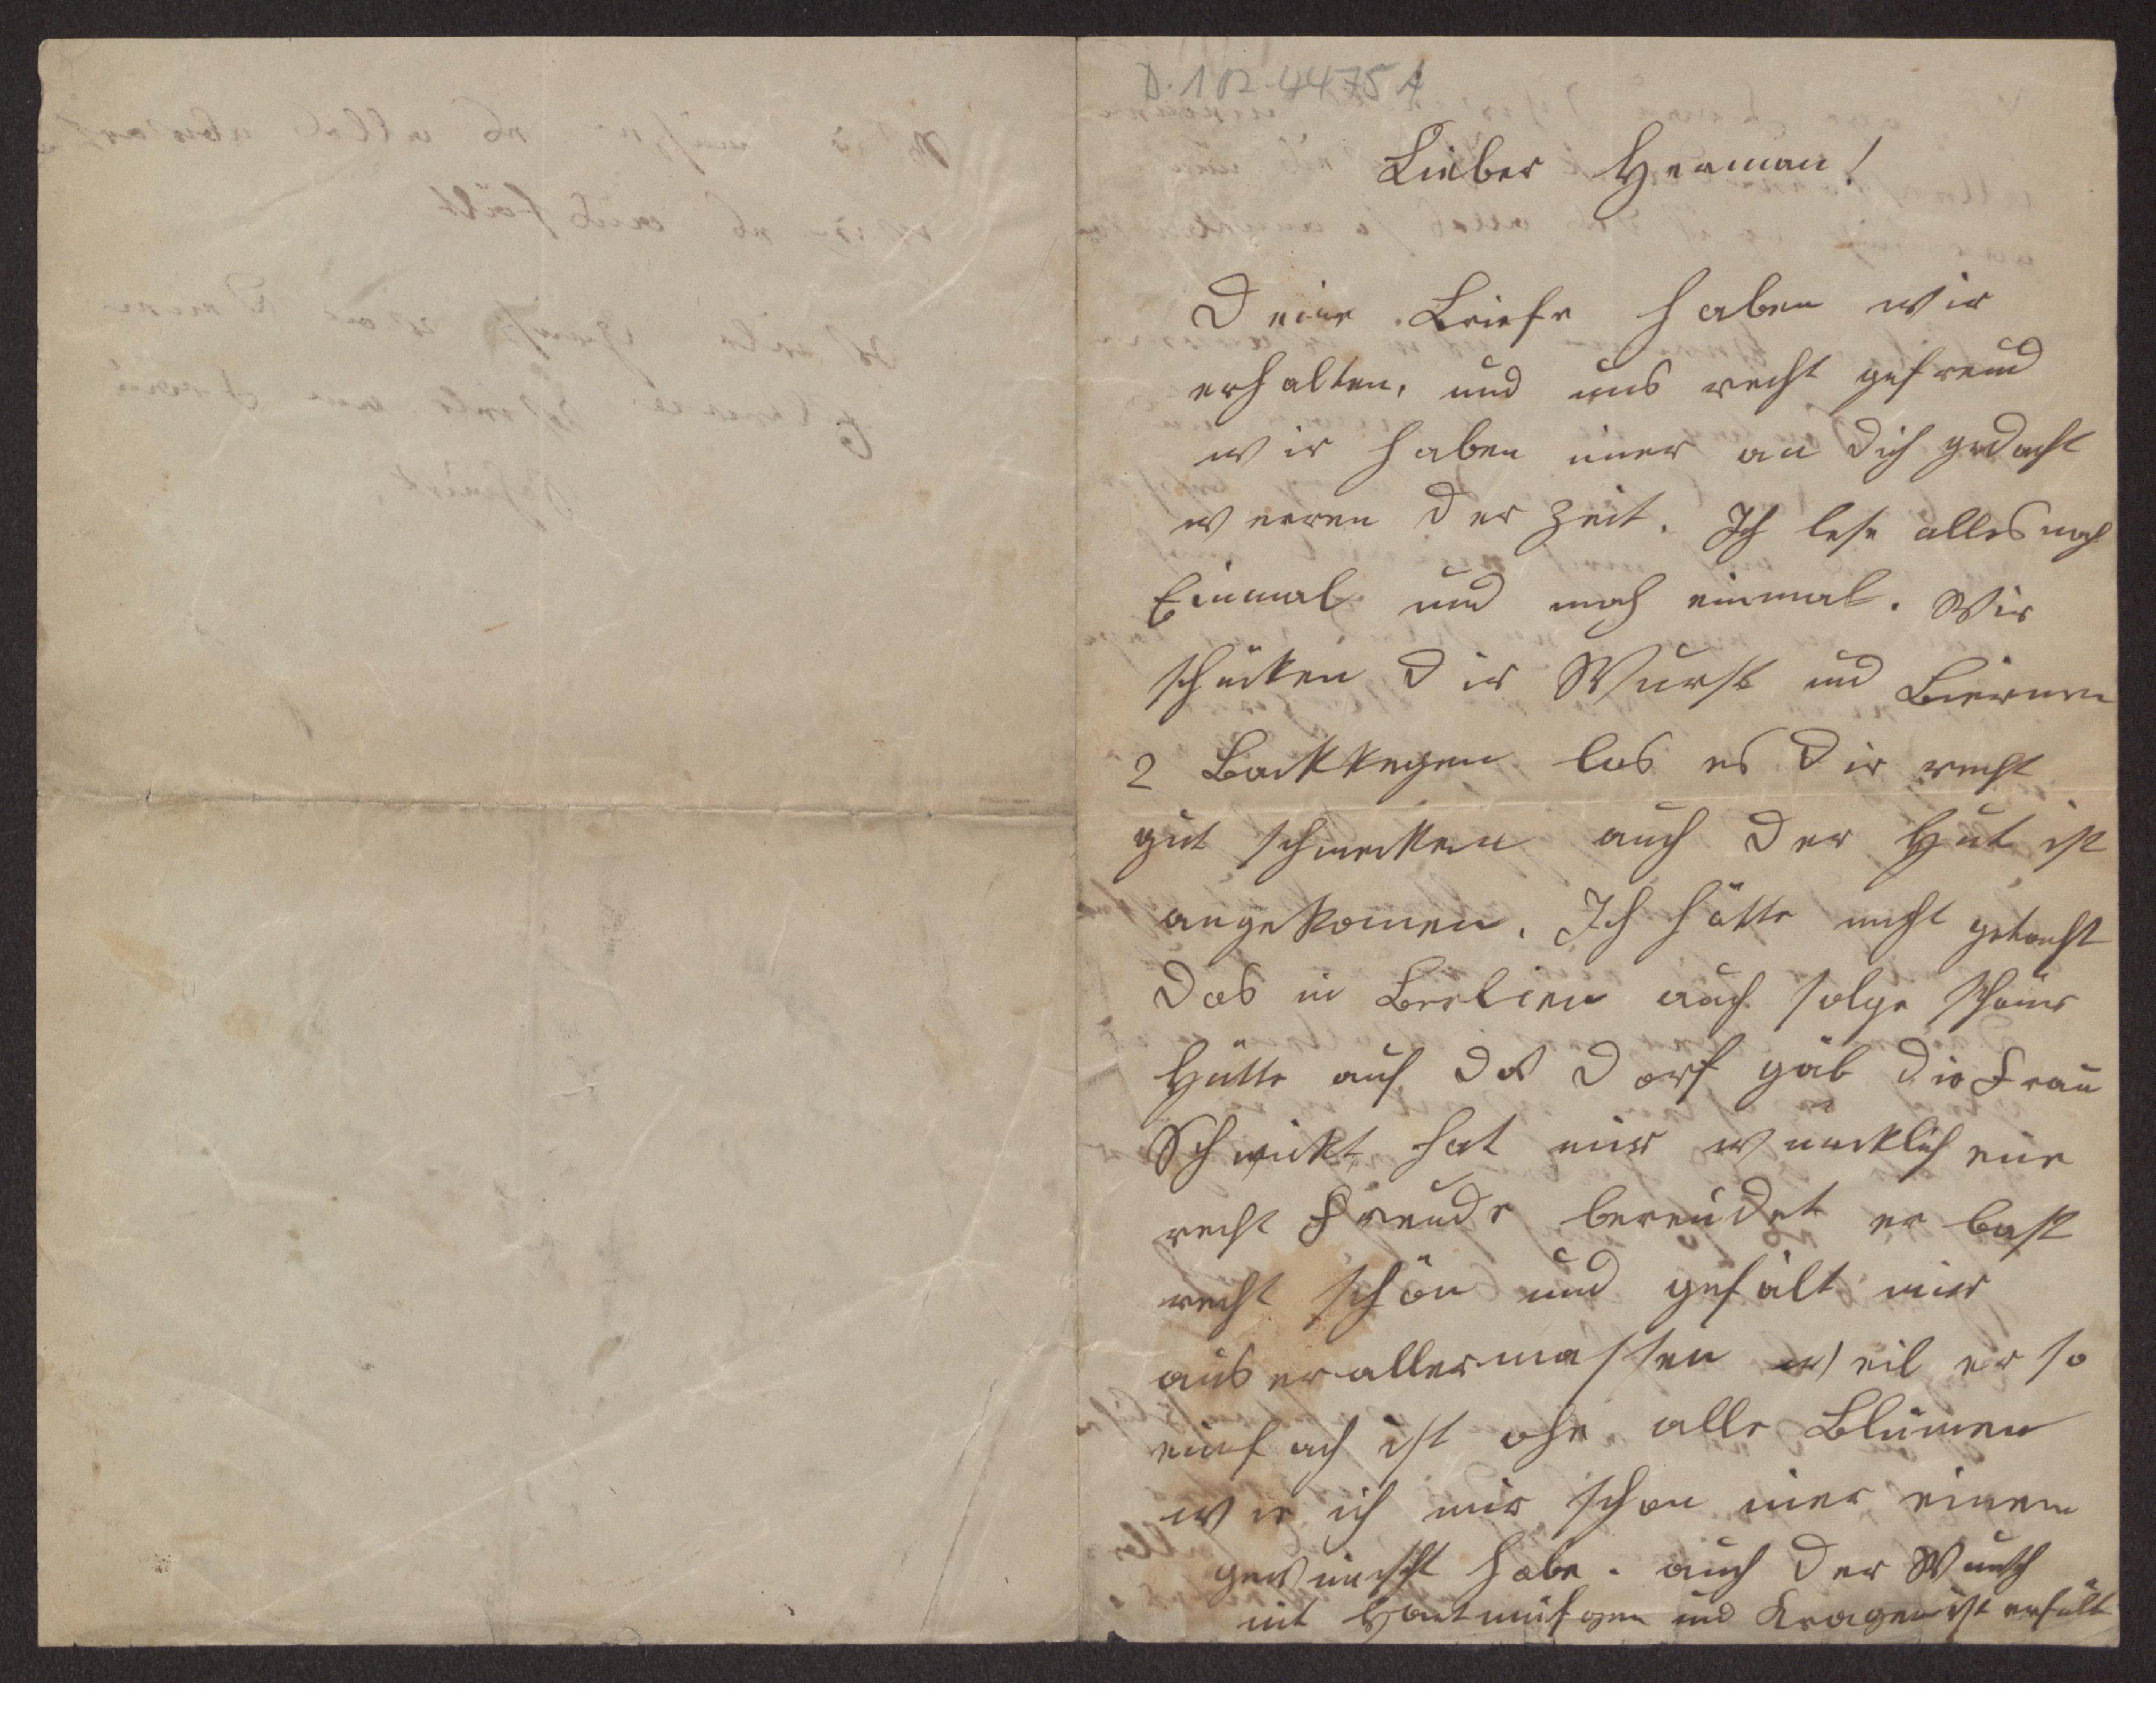 D. 102.4475 A
Lieber Herman!
Deine Briefe haben wir
erhalten, und uns recht gefreud
wir haben imer an dich gedacht
weren der Zeit. Ich lese alles noch
Einmal und noch einmal. Wir
schücken dir Wurst und Biernen
2 Backkegen las es dir recht
gut schmecken auch der Hut ist
angekomen. Ich hätte nicht getacht
das in Berlien auch solge schöne
Hütte auf das Dorf gäb die Frau
Schmickt hat mir wircklich eine
recht Freude bereudet er bast
recht schön und gefält mir
auserallermassen weil er so
einfach ist ohe alle Blumen
wie ich mir schon imer einen
gewünscht habe. auch der Wunsch
mit und Kragen ist erfült